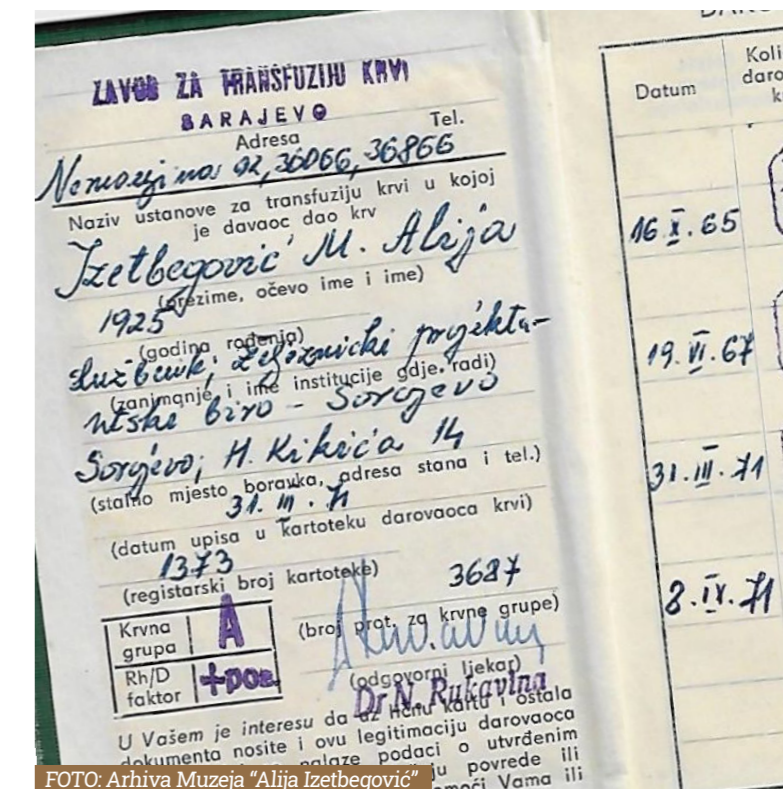 ZAVOD ZA TRANSFUZIJU KRVI
SARAJEVO
Adresa Tel.
92, 36066, 36866
Naziv ustanove za transfuziju krvi u kojoj
je davaoc dao krv
Izetbegović M. Alija
(prezime, očevo ime i ime)
1925
(godina rođenja)
službenik, željeznički projekta-
(zanimanje i ime institucije gdje radi)
ntski biro - Sarajevo
Sarajevo, H. Kikića 14
(stalno mjesto boravka, adresa stana i tel.)
31. III. 71
(datum upisa u kartoteku darovaoca krvi)
1373
(registarski broj kartoteke)
3687
(broj prot. za krvne grupe)
Krvna grupa A
Rh/D faktor +poz.
(odgovorni ljekar)
Dr N. Rukavina
U Vašem je interesu da uz ličnu kartu i ostala
dokumenta nosite i ovu legitimaciju darovaoca
nalaze podaci o utvrđenim
povrede ili
Vama ili
Datum
16 X. 65
19. VI. 67
31. III. 71
8. IX. 71
FOTO: Arhiva Muzeja “Alija Izetbegović”